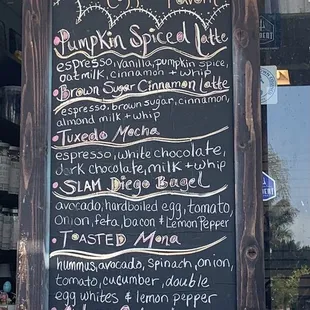 Pumpkin Spiced Latte
espresso, vanilla, pumpkin spice,
oatmilk, cinnamon + whip
Brown Sugar Cinnamon Latte
espresso, brown sugar, cinnamon,
almond milk + whip
Tuxedo Mocha
espresso, white chocolate,
dark chocolate, milk + whip
SLAM Diego Bagel
avocado, hardboiled egg, tomato,
onion, feta, bacon & Lemon Pepper
TOASTED Mona
hummus, avocado, spinach, onion,
tomato, cucumber, double
egg whites & lemon pepper